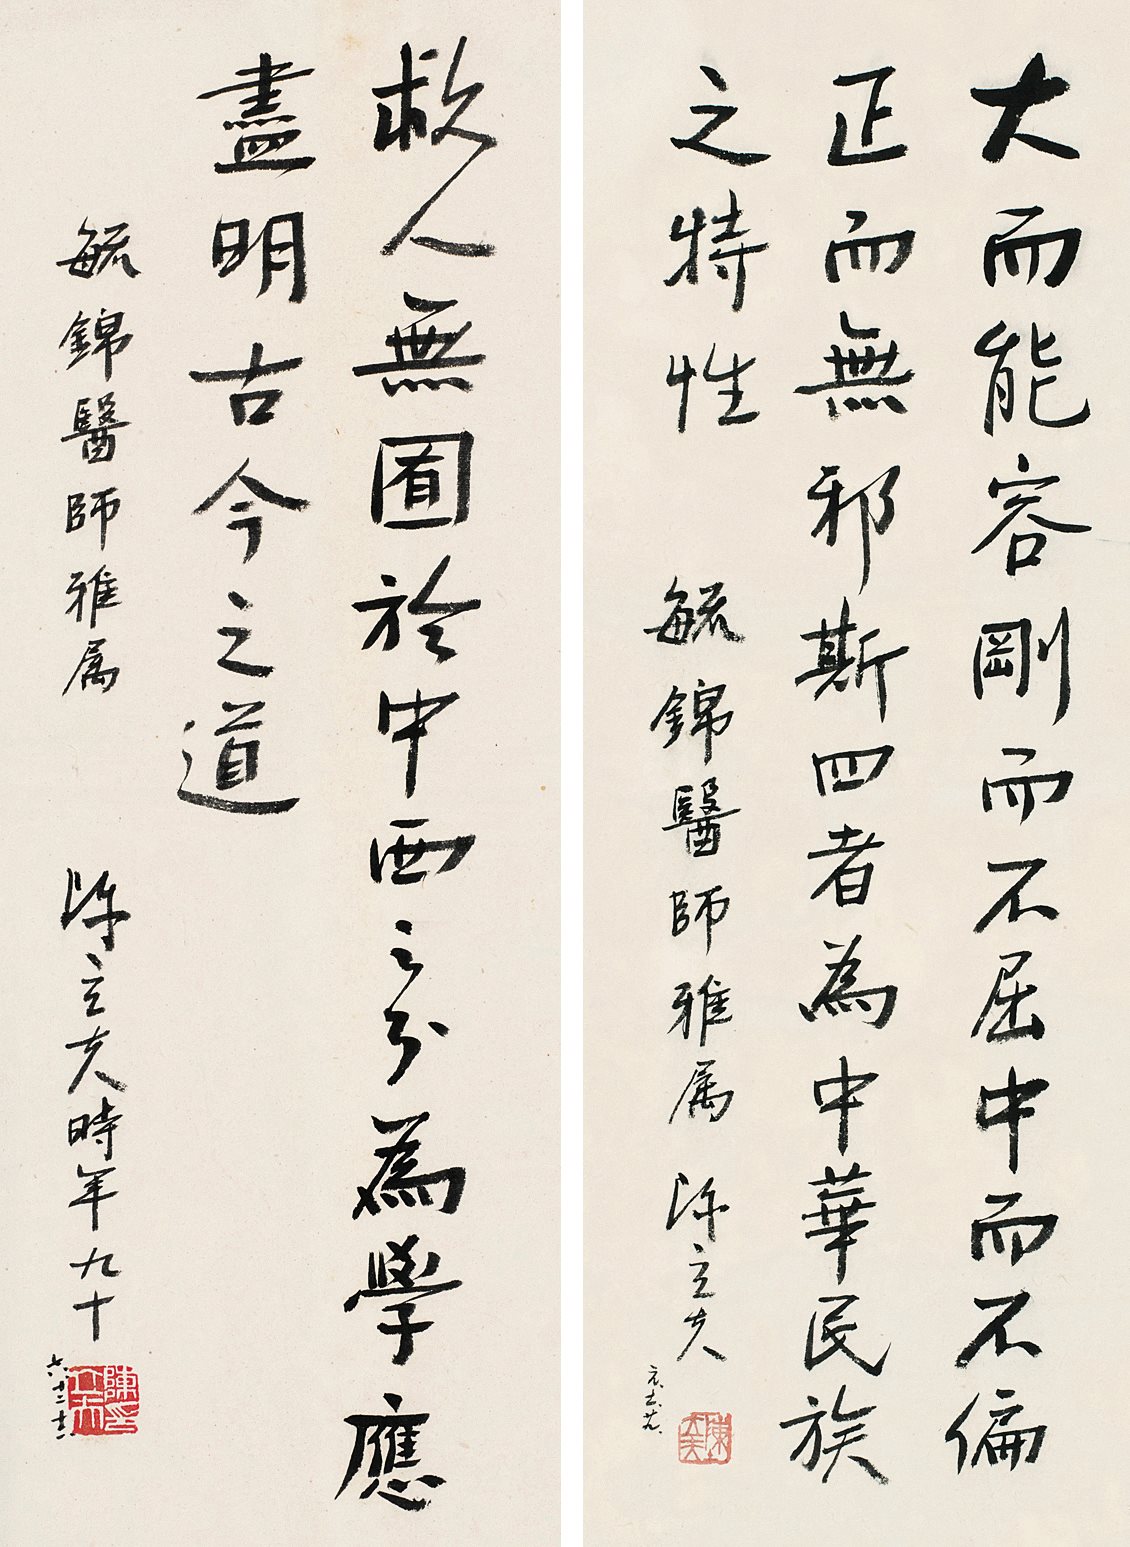 大而能容剛而不屈中而不偏
正而無邪斯四者為中華民族
之特性
毓錦醫師雅属 陳立夫
陳立夫
救人無囿於中西之分為學應
盡明古今之道
毓錦醫師雅属 陳立夫時年九十
陳印立夫